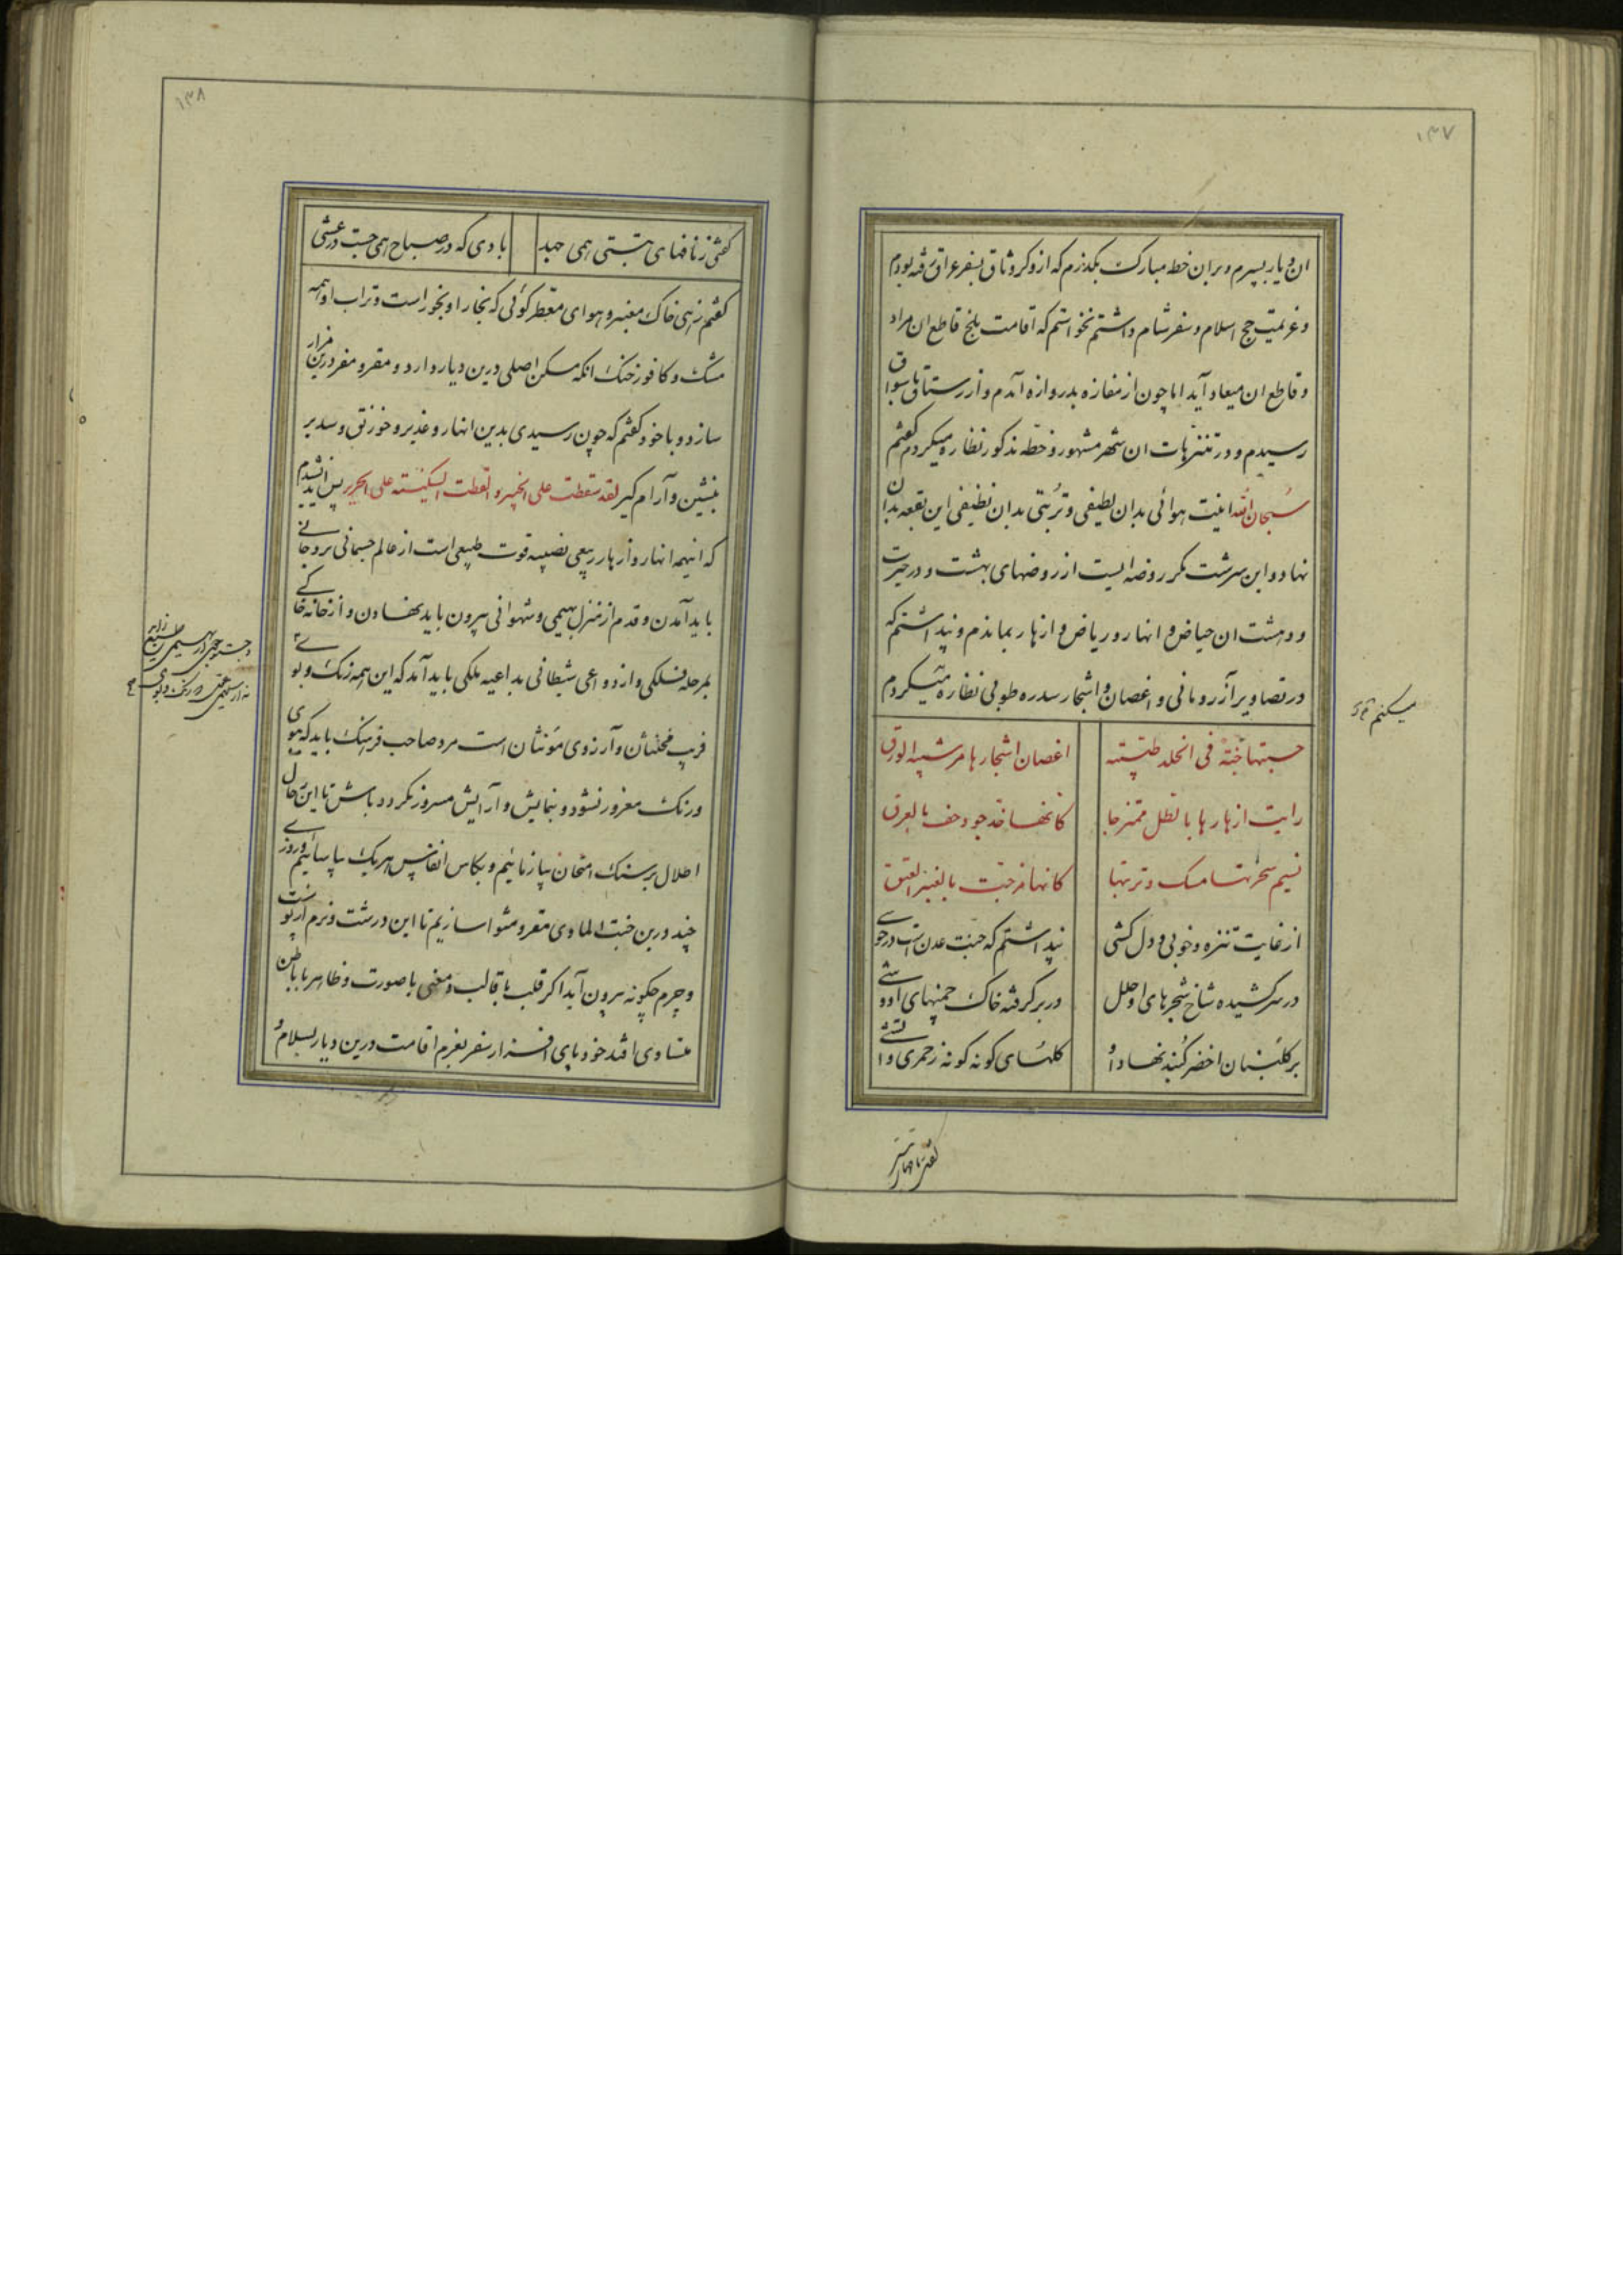 ۱۳۷
ان دیار بسپرم و بران خطه مبارک بگذرم که از وکر و ثاق بسفر عراق رفته بودم
و عزیمت حج اسلام و سفر شام داشتم نخواستم که اقامت بلخ قاطع ان مراد
و قاطع ان میعاد آید اما چون از مفازه بدروازه آمدم و از رستاق باسواق
رسیدم و در تنزهات ان شهر مشهور و خطه مذکور نظاره میکردم گفتم
سبحان الله اینت هوائی بدان لطیفی و تربتی بدان نظیفی این بقعه بدان
نهاد و این سرشت مگر روضه ایست از روضهای بهشت و در حیرت
و دهشت ان حیاض و انهار و ریاض و ازهار بماندم و پنداشتم که
در تصاویر آزر و مانی و اغصان و اشجار سدره طوبی نظاره میکردم
میکنم
حسبتها جنة فی الخلد طیبته اغصان اشجارها مرشیه الورق
رایت ازهارها بالطل ممتزجا کانها خد جود حف بالعرق
نسیم سحرتها مسک و تربتها کانها مزجت بالعنبر العبق
از غایت تنزه و خوبی و دل کشی پنداشتم که جنت عدن است در خوشی
در سر کشیده شاخ شجرهای او حلل در بر گرفته خاک چمنهای او وشی
بر گلبنان اخضر گنبد نهاد او گلهای گونه گونه ز حمری و اتشی
۱۳۸
گفتی ز نافهای تبتی همی جهد بادی که در صباح همی جست در عشی
گفتم زهی خاک معنبر و هوای معطر گوئی که بخار او بخور است و تراب او همه
مشک و کافور خنک انکه مسکن اصلی درین دیار دارد و مقر و مفر درین مزار
سازد و با خود گفتم که چون رسیدی بدین انهار و غدیر و خورنق و سدیر
بنشین و آرام گیر لقد سقطت علی الخبیر و القطت السکینته علی الحریر پس
که اینهمه انهار و ازهار ربیعی نصیبه قوت طبیعی است از عالم جسمانی بروحانی
باید آمدن و قدم از منزل بهیمی و شهوانی بیرون باید نهادن و از خانه خاکی
بمرحله فلکی و از دواعی شیطانی بداعیه ملکی باید آمد که این همه رنگ و بوی
فریب مخنثان و آرزوی مؤنثان است مرد صاحب فرهنگ باید که ببوی
و رنگ مغرور نشود و بنمایش و آرایش مسرور نگردد باش تا این رجال
اطلال بر سنگ امتحان بیازمائیم و بکاس انفاس هریک بیاسائیم و روزی
چند درین جنت الماوی مقر و مثوا سازیم تا این درشت و نرم از پوست
و چرم چگونه بیرون آید اگر قلب با قالب و معنی با صورت و ظاهر با باطن
متساوی افتد خود پای افزار سفر بعزم اقامت درین دیار بسلام و